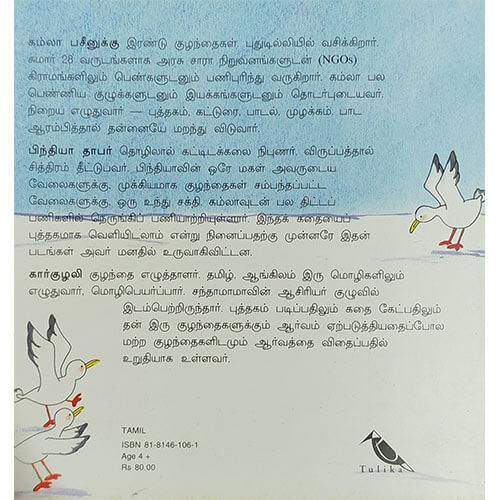 கமலா பசீனுக்கு இரண்டு குழந்தைகள். புதுடில்லியில் வசிக்கிறார்.
சுமார் 28 வருடங்களாக அரசு சாரா நிறுவனங்களுடன் (NGOs)
கிராமங்களிலும் பெண்களுடனும் பணிபுரிந்து வருகிறார். கம்லா பல
பெண்ணிய குழுக்களுடனும் இயக்கங்களுடனும் தொடர்புடையவர்.
நிறைய எழுதுவார் — புத்தகம், கட்டுரை, பாடல், முழக்கம். பாட
ஆரம்பித்தால் தன்னையே மறந்து விடுவார்.
பிந்தியா தாபர் தொழிலால் கட்டிடக்கலை நிபுணர், விருப்பத்தால்
சித்திரம் தீட்டுபவர். பிந்தியாவின் ஒரே மகள் அவருடைய
வேலைகளுக்கு, முக்கியமாக குழந்தைகள் சம்பந்தப்பட்ட
வேலைகளுக்கு, ஒரு உந்து சக்தி. கம்லாவுடன் பல திட்டப்
பணிகளில் நெருங்கிப் பணியாற்றியுள்ளார். இந்தக் கதையைப்
புத்தகமாக வெளியிடலாம் என்று நினைப்பதற்கு முன்னரே இதன்
படங்கள் அவர் மனதில் உருவாகிவிட்டன.
கார்குழலி குழந்தை எழுத்தாளர். தமிழ், ஆங்கிலம் இரு மொழிகளிலும்
எழுதுவார், மொழிபெயர்ப்பார். சந்தாமாமாவின் ஆசிரியர் குழுவில்
இடம்பெற்றிருந்தார். புத்தகம் படிப்பதிலும் கதை கேட்பதிலும்
தன் இரு குழந்தைகளுக்கும் ஆர்வம் ஏற்படுத்தியதைப்போல
மற்ற குழந்தைகளிடமும் ஆர்வத்தை விதைப்பதில்
உறுதியாக உள்ளவர்.
TAMIL
ISBN 81-8146-106-1
Age 4 +
Rs 80.00
Tulika